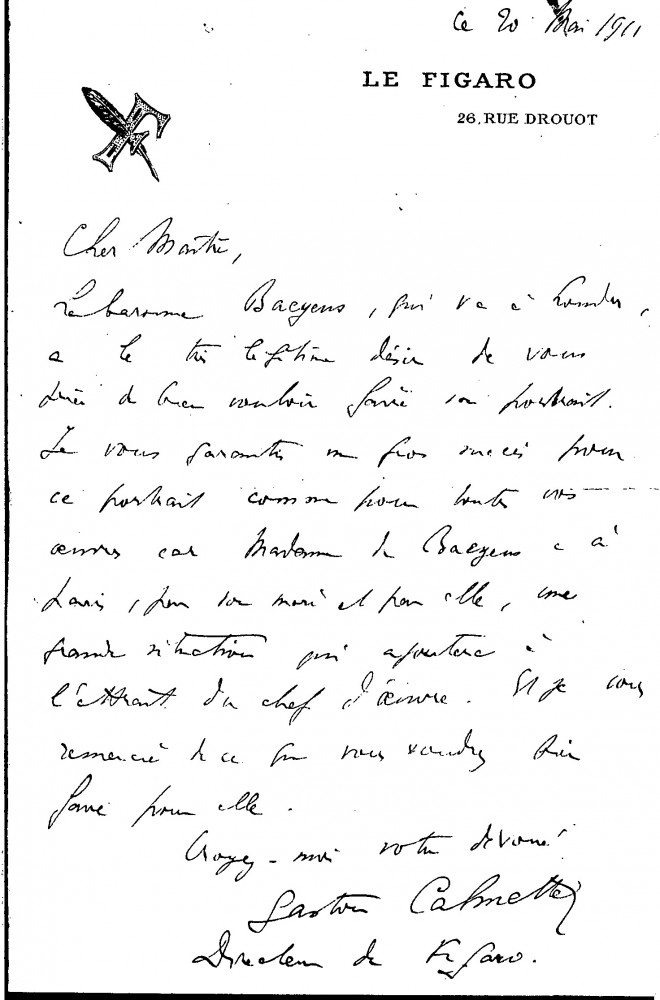 Ce 20 Mai 1911
LE FIGARO
26, RUE DROUOT
Cher Maître,
La baronne Baeyens, qui va à Londres,
a le très légitime désir de vous
prier de bien vouloir faire son portrait.
Je vous garantis un gros succès pour
ce portrait comme pour toutes vos
œuvres car Madame de Baeyens a à
Paris, par son mari et par elle, une
grande situation qui ajoutera à
l'attrait du chef d'œuvre. Et je vous
remercie de ce que vous voudrez bien
faire pour elle.
Croyez-moi votre dévoué
Gaston Calmette
Directeur du Figaro.